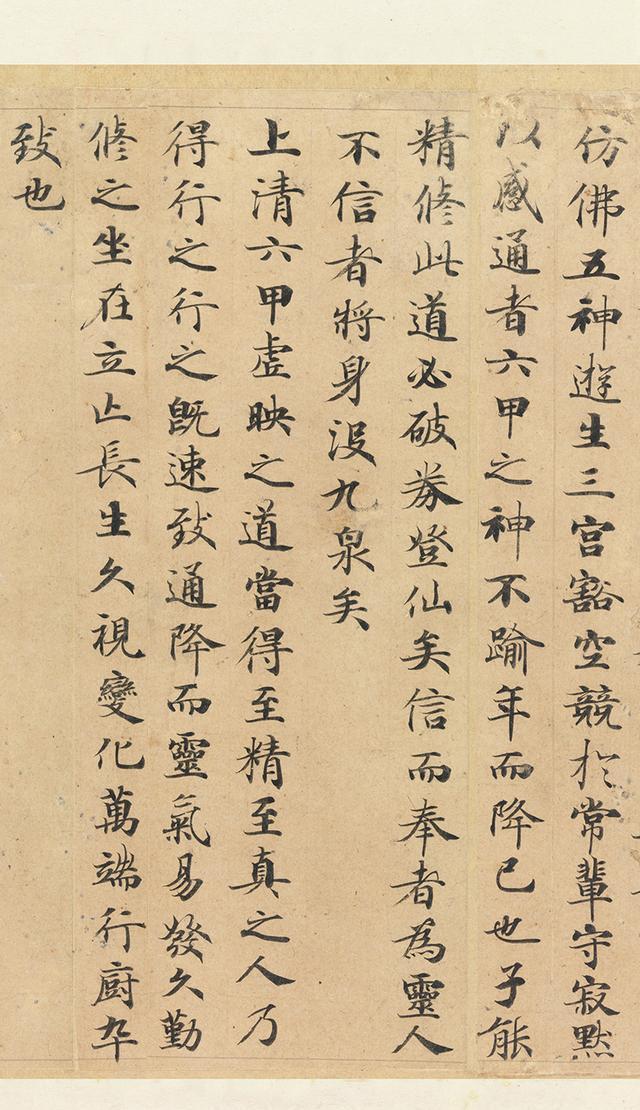 仿佛五神遊生三宮豁空競於常輩守寂默
以感通者六甲之神不踰年而降己也子能
精脩此道必破券登仙矣信而奉者為靈人
不信者將身沒九泉矣
上清六甲虛映之道當得至精至真之人乃
得行之行之既速致通降而靈氣易發久勤
脩之坐在立亡長生久視變化萬端行廚卒
致也